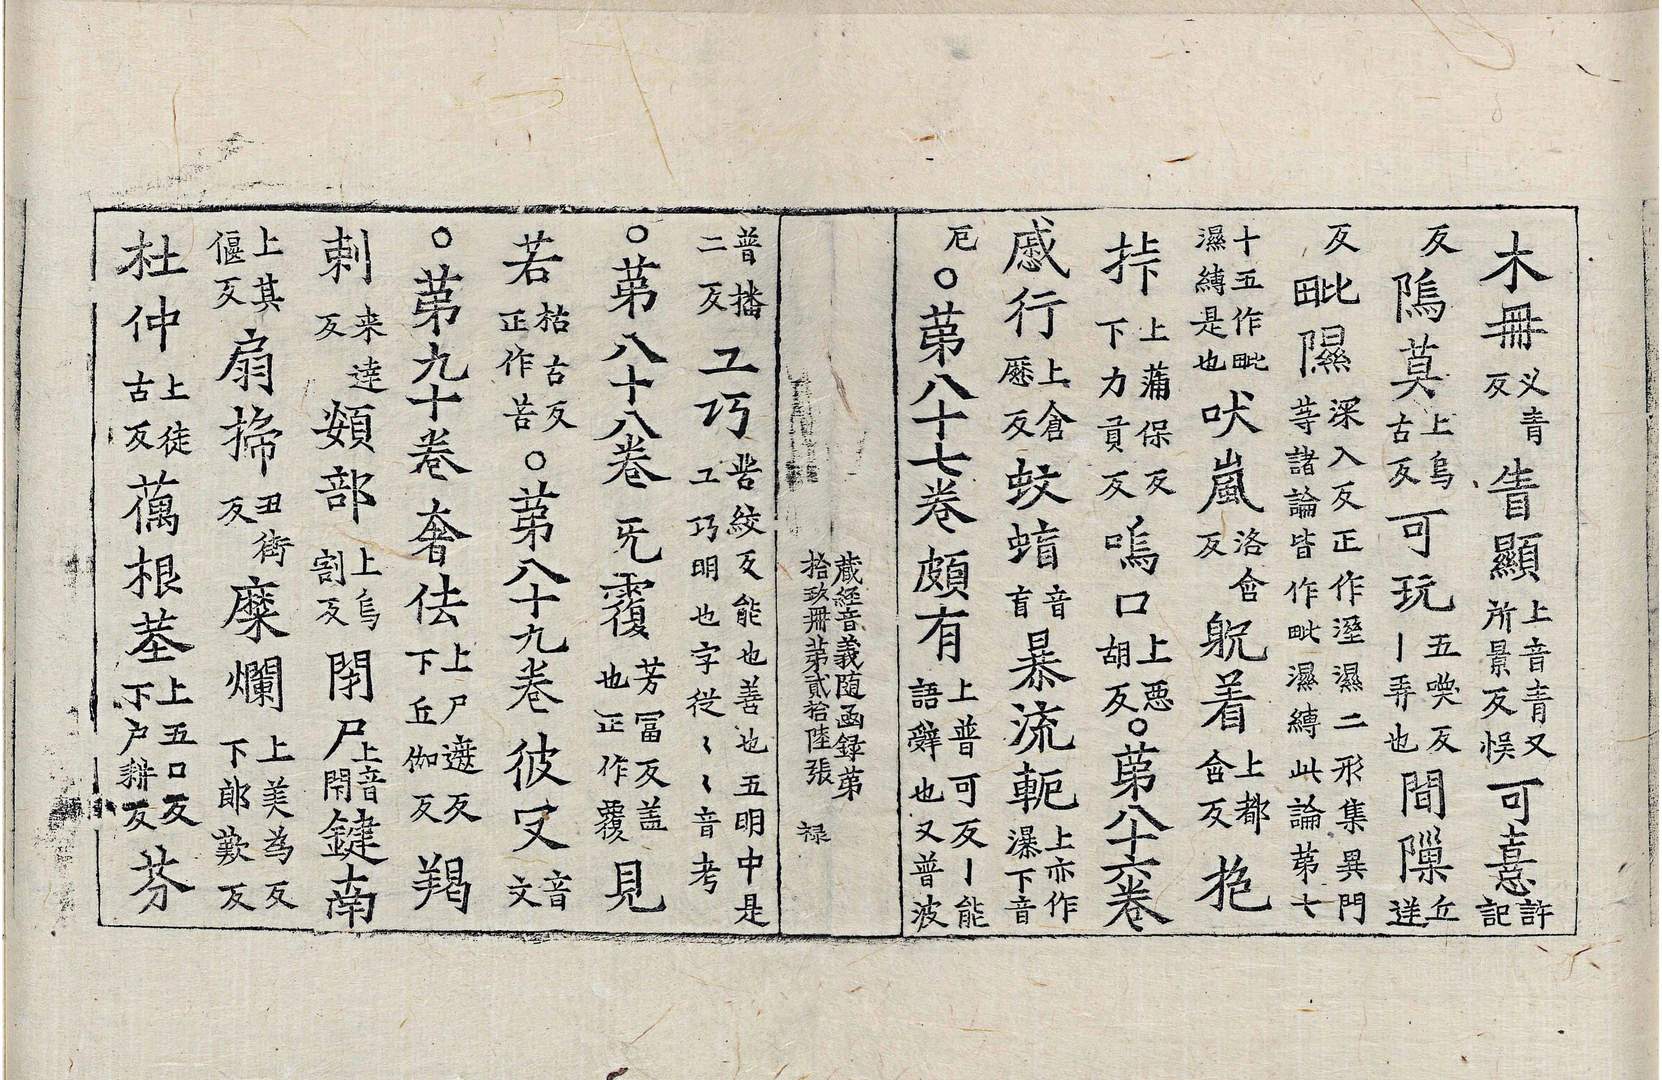 木冊义青反眚顯上音青又所景反悮可憙許記
反隖莫上烏古反可玩五喚反丨弄也間隟丘逆
反毗隰深入反正作溼濕二形集異門䓁諸論皆作毗濕縛此論苐七
十五作毗濕縛是也吠嵐洛含反躭着上都含反抱
挊上蒲保反下力貢反嗚口上惡胡反○苐八十六卷
慼行上倉歷反蚊蝱音盲暴流軛上亦作瀑下音
厄○苐八十七卷頗有上普可反丨能語辝也又普波
藏經音義随函録苐拾玖冊苐貳拾陸張 禄
普播二反工巧苦絞反能也善也五明中是工巧明也字從〻〻音考
○苐八十八卷旣覆芳冨反盖也正作覆見
若枯古反正作苦○苐八十九卷彼㕛音文
○苐九十卷奢佉上尸遮反下丘伽反羯
剌来達反頞部上烏割反閉尸上音閇鍵南
上其偃反扇搋丑街反糜爛上美為反下郎歎反
杜仲上徒古反萬根莖上五口反下户耕反芬